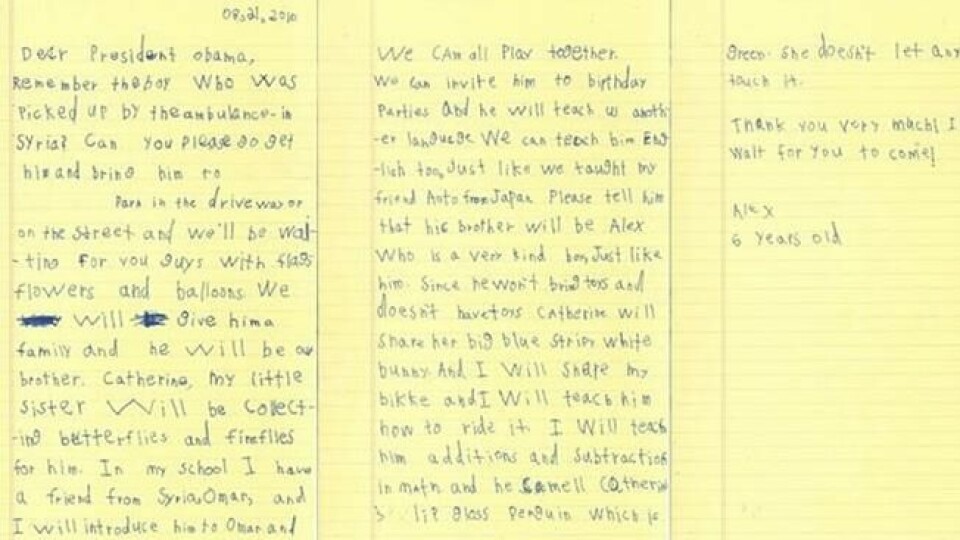 08,21,2010
Dear President obama,
Remember the boy Who Was
Picked up by the ambulance in
Syria? Can you please go get
him and bring him to
Park in the driveway or
on the street and we'll be wai-
-ting for you guys with flags
flowers and balloons. We
will give him a
family and he will be our
brother. Catherine, my little
sister Will be collect-
-ing butterflies and fireflies
for him. In my school I have
a friend from Syria, Omar, and
I will introduce him to Omar and
We can all play together.
We can invite him to birthday
Parties And he will teach us anoth-
-er language. We can teach him Eng
-lish too, Just like we taught my
friend Aoto from Japan. Please tell him
that his brother will be Alex
Who is a very kind boy, Just like
him. Since he won't bring toys and
doesn't have toys Catherine will
share her big blue stripy white
bunny. And I Will share my
bikke and I Will teach him
how to ride it. I Will teach
him additions and subtractions
in math and he smell Catherine
s lip gloss Penguin which is
green. She doesn't let any
touch it.
Thank you very much! I
wait for you to come!
Alex
6 years old